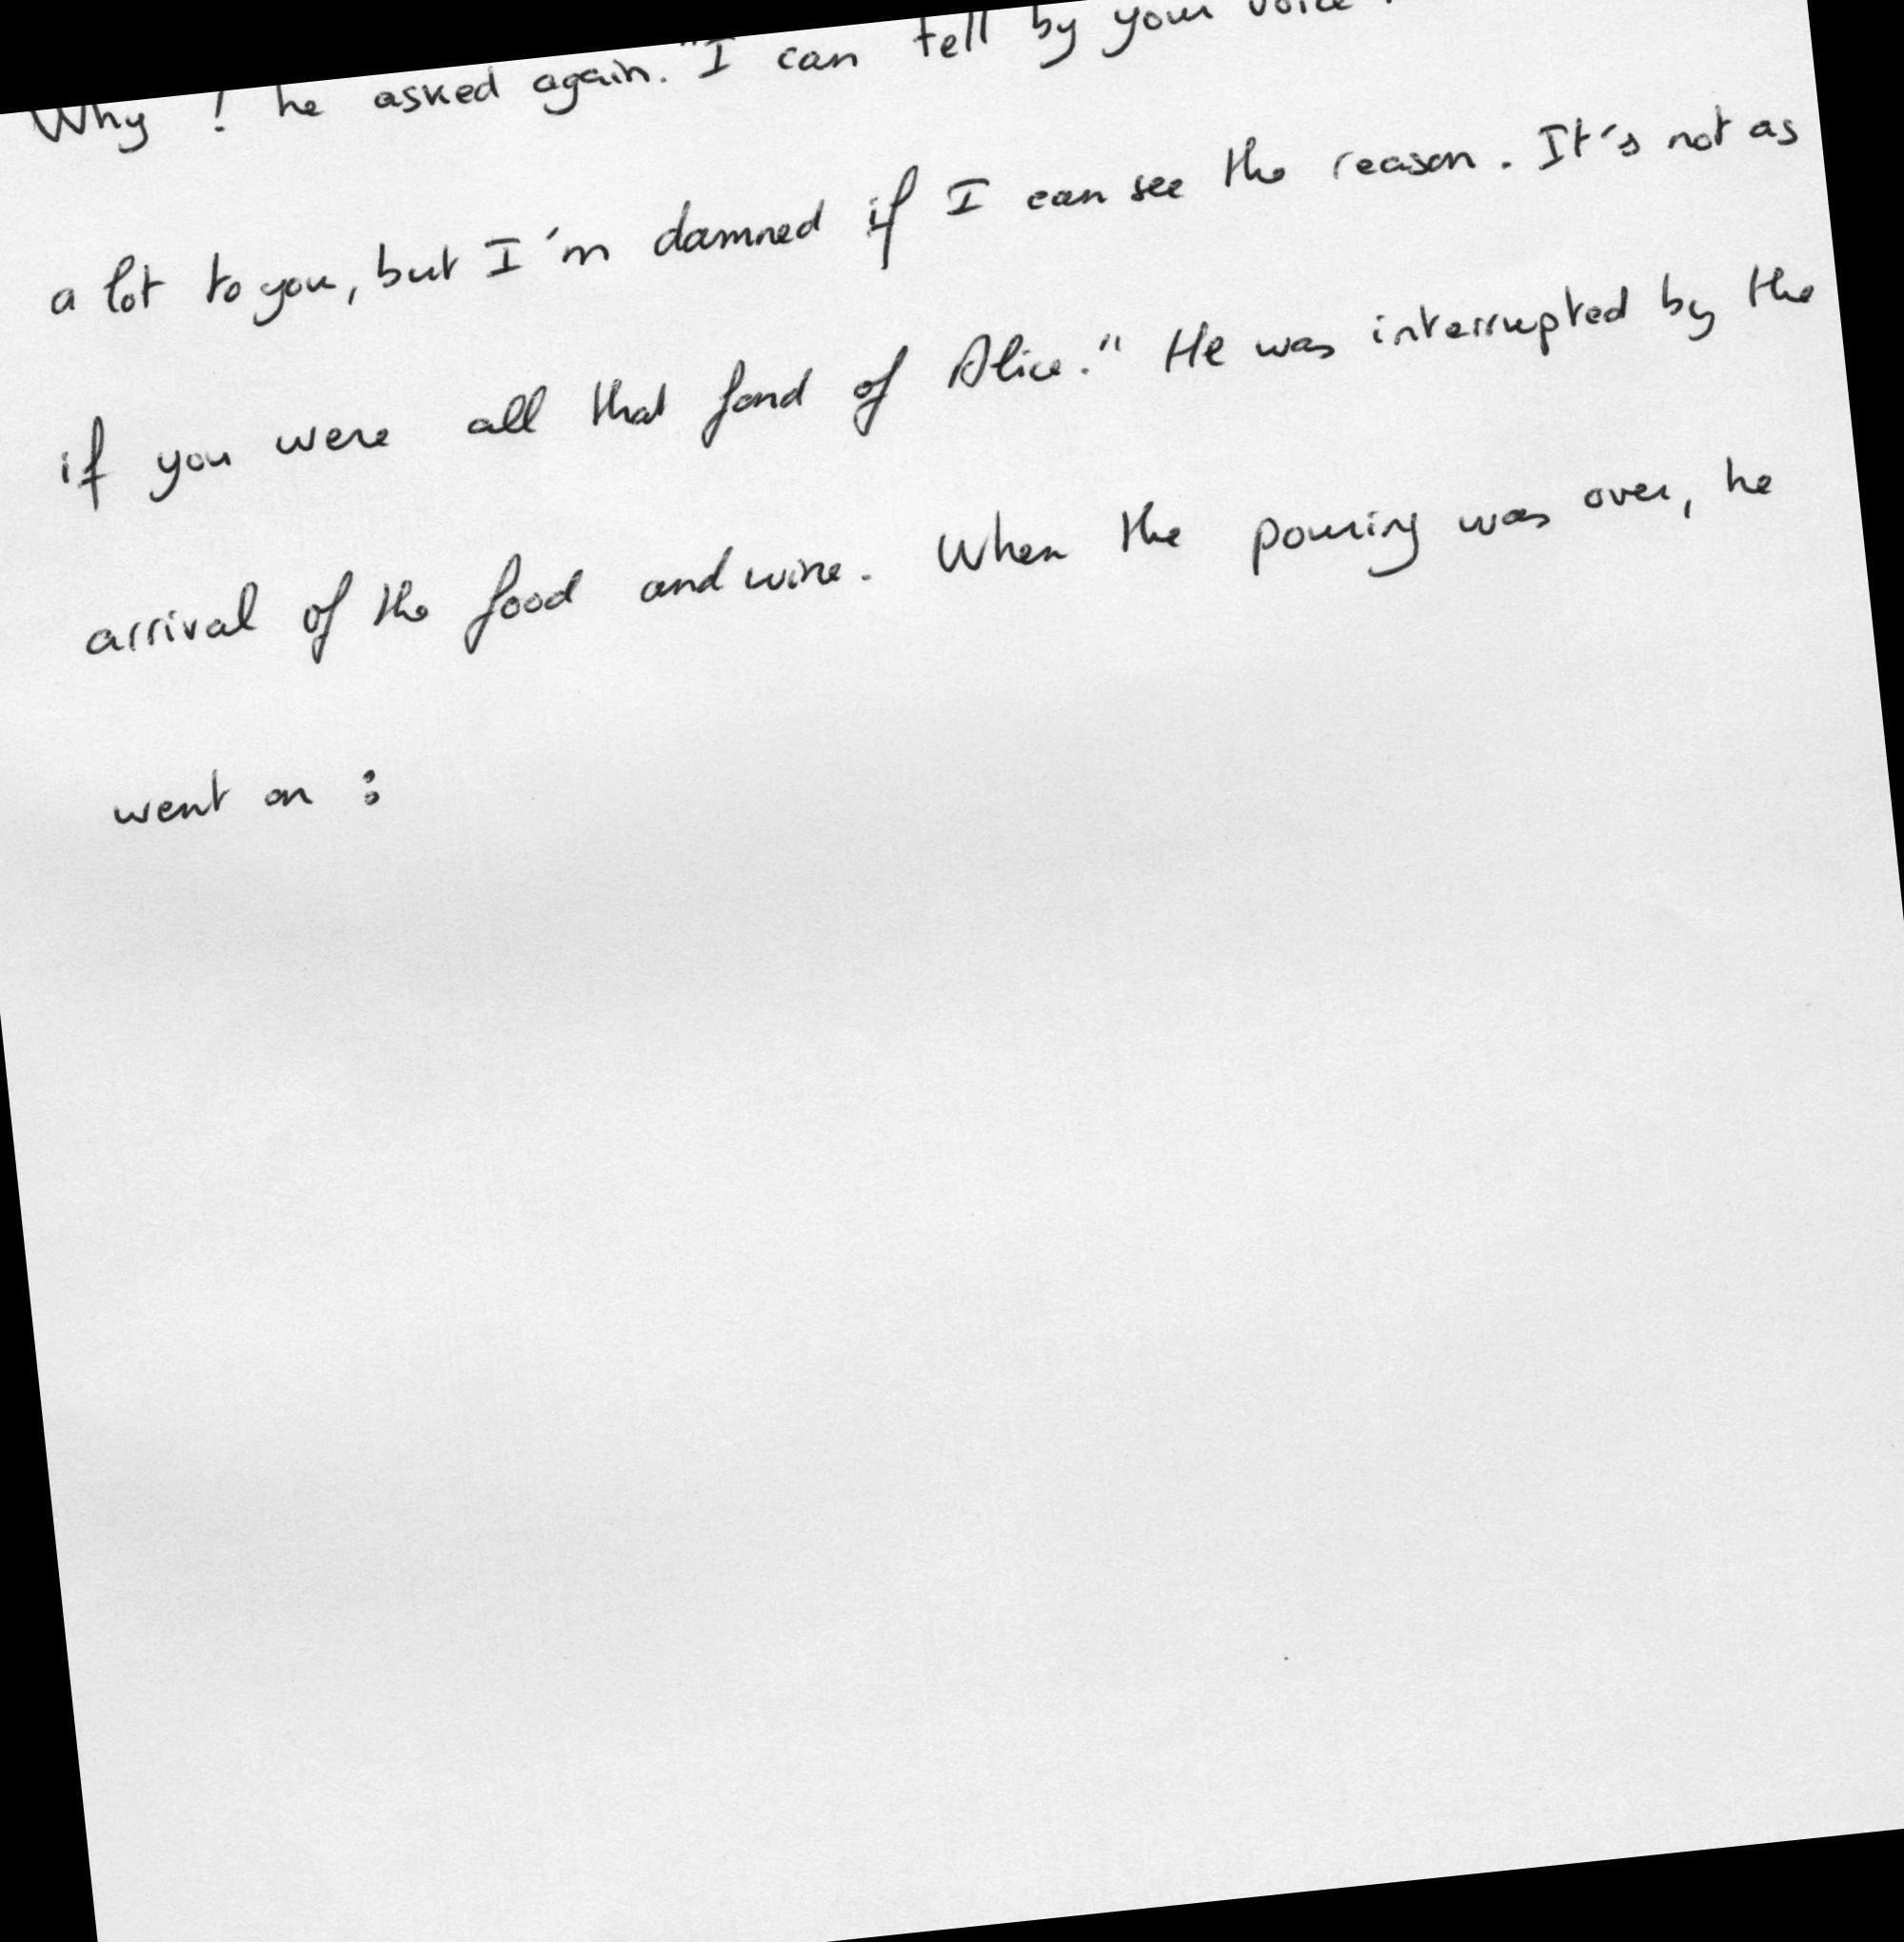 Why! he asked again. "I can tell by your voice
a lot to you, but I'm damned if I can see the reason. It's not as
if you were all that fond of Alice." He was interrupted by the
arrival of the food and wine. When the pouring was over, he
went on :